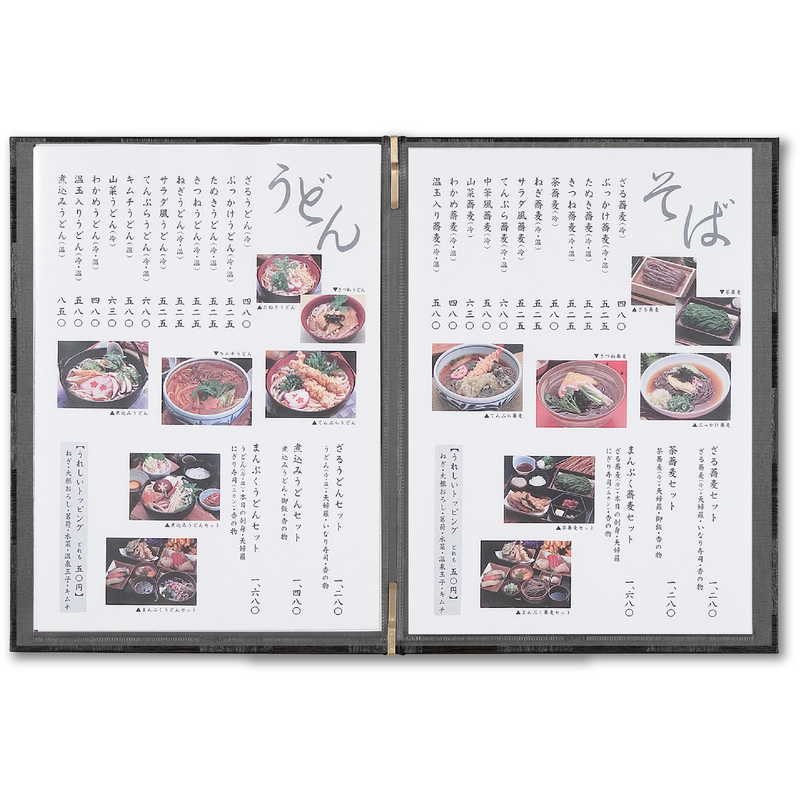 そば
ざる蕎麦（冷） 四八〇
ぶっかけ蕎麦（冷・温） 五二五
たぬき蕎麦（冷・温） 五二五
きつね蕎麦（冷・温） 五二五
茶蕎麦（冷） 五八〇
ねぎ蕎麦（冷・温） 五二五
サラダ風蕎麦（冷） 五二五
てんぷら蕎麦（冷・温） 六八〇
中華風蕎麦（冷） 五八〇
山菜蕎麦（冷・温） 六三〇
わかめ蕎麦（冷・温） 四八〇
温玉入り蕎麦（冷・温） 五八〇
▼茶蕎麦
▲ざる蕎麦
▼きつね蕎麦
▲てんぷら蕎麦
▲ぶっかけ蕎麦
ざる蕎麦セット 一、二八〇
ざる蕎麦（冷）・天婦羅・いなり寿司・香の物
茶蕎麦セット 一、二八〇
茶蕎麦（冷）・天婦羅・御飯・香の物
まんぷく蕎麦セット 一、六八〇
ざる蕎麦（冷）・本日の刺身・天婦羅
にぎり寿司（二カン）・香の物
▲茶蕎麦セット
▲まんぷく蕎麦セット
【うれしいトッピング どれも 五〇円】
ねぎ・大根おろし・茗荷・水菜・温泉玉子・キムチ
うどん
ざるうどん（冷） 四八〇
ぶっかけうどん（冷・温） 五二五
たぬきうどん（冷・温） 五二五
きつねうどん（冷・温） 五二五
ねぎうどん（冷・温） 五二五
サラダ風うどん（冷） 五二五
てんぷらうどん（冷・温） 六八〇
キムチうどん（温） 五八〇
山菜うどん（冷） 六三〇
わかめうどん（冷・温） 四八〇
温玉入りうどん（冷・温） 五八〇
煮込みうどん（温） 八五〇
▼きつねうどん
▲たぬきうどん
▼キムチうどん
▲煮込みうどん
▲てんぷらうどん
ざるうどんセット 一、二八〇
うどん（冷・温）・天婦羅・いなり寿司・香の物
煮込みうどんセット 一、四八〇
煮込みうどん・御飯・香の物
まんぷくうどんセット 一、六八〇
うどん（冷・温）・本日の刺身・天婦羅
にぎり寿司（二カン）・香の物
▲煮込みうどんセット
▲まんぷくうどんセット
【うれしいトッピング どれも 五〇円】
ねぎ・大根おろし・茗荷・水菜・温泉玉子・キムチ